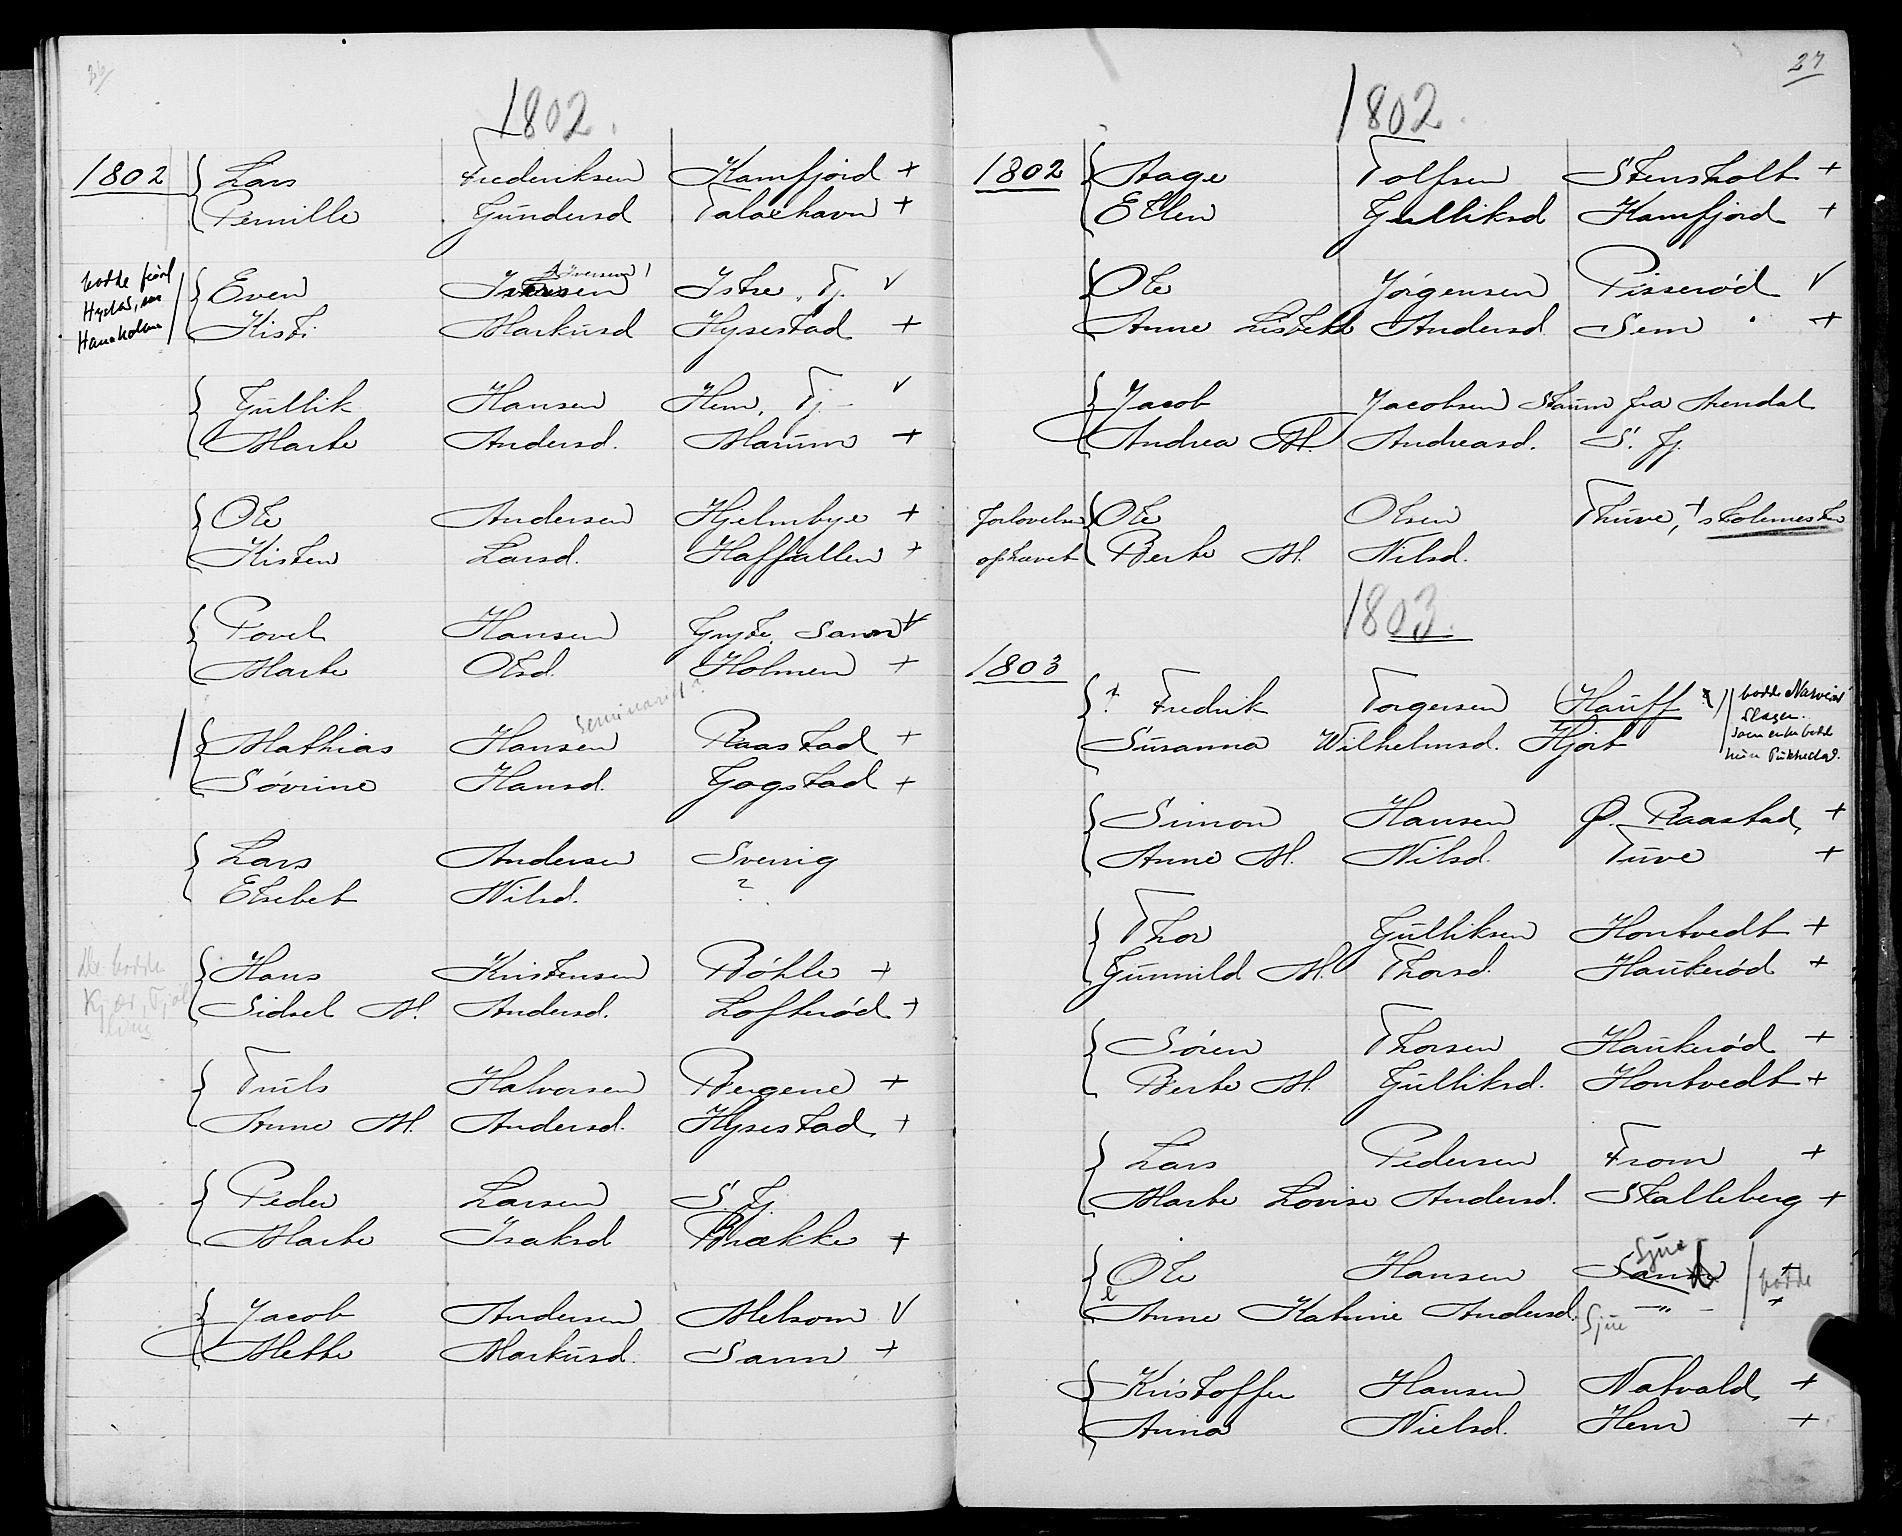 26
1802.
1802 Lars Frederiksen Kamfjord +
Pernille Gundersd Talaxhavn +
bodde først
Even Iversen Istre, Tj. v
Kisti Markusd Hysestad +
Gullik Hansen Hem, Tj. v
Marte Andersd. Marum +
Ole Andersen Hjelmbye +
Kisten Larsd. Haffallen +
Povel Hansen Gryte, Sann v
Marte Olsd. Holmen +
Seminarist?
Mathias Hansen Raastad +
Sövrine Hansd. Gogstad +
Lars Andersen Sverrig
Elsebet Nilsd. ?
De bodde
Kjær, Tjøl
ling
Hans Kristensen Bøhle +
Sidsel M. Andersd. Lofterød +
Truls Halvorsen Bergene +
Anne M. Andersd. Hysestad, +
Peder Larsen S. Fj.
Marte Isaksd Brække +
Jacob Andersen Melsom v
Mette Markusd. Sann +
27
1802.
1802 Aage Tolfsen Stensholt +
Ellen Gulliksd Kamfjord +
Ole Jørgensen Pisserød v
Anne Lisbeth Andersd. Sem +
Jacob Jacobsen Staum fra Arendal
Andrea M. Andreasd. S. Fj.
forlovelsen Ole Olsen Thuve, + skolemester
ophævet Berte M. Nilsd.
1803.
1803
+ Fredrik Torgersen Hauff
Susanna Wilhelmsd. Hjort
bodde Narverød
Slagen.
som enke bodde
Simon Hansen Ø. Raastad, +
Anne M. Nilsd. Tuve +
Thor Gulliksen Hontvedt +
Gunnild M. Thorsd. Haukerød +
Sören Thorsen Haukerød +
Berte M. Gulliksd. Hontvedt +
Lars Pedersen From +
Marte Lovise Andersd. Skalleberg +
Sjue
Ole Hansen Sande + bodde
Anne Katrine Andersd. Sjue -"- +
Kristoffer Hansen Natvald, +
Anna Nielsd. Hem +